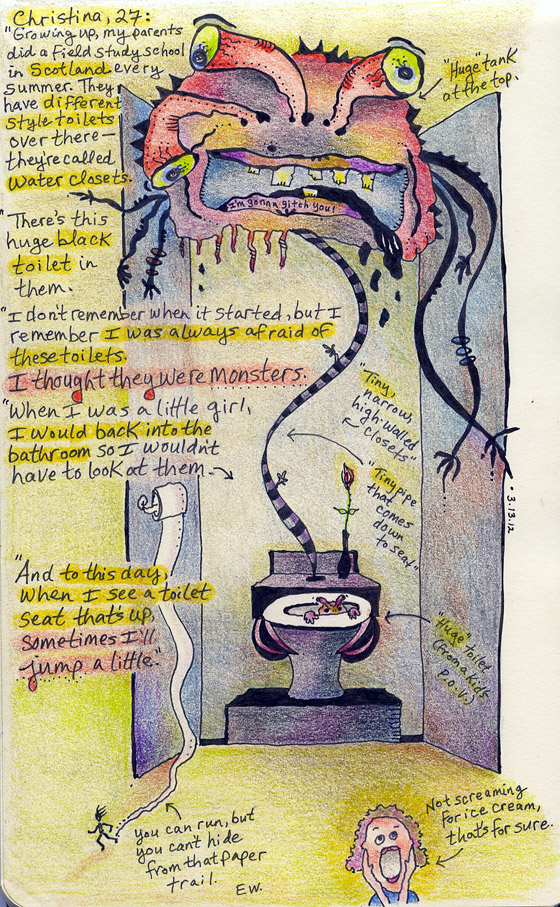 Christina, 27:
"Growing up, my parents
did a field study school
in Scotland every
summer. They
have different
style toilets
over there—
they're called
water closets.
"There's this
huge black
toilet in
them.
"I don't remember when it started, but I
remember I was always afraid of
these toilets.
I thought they were monsters.
"When I was a little girl,
I would back into the
bathroom so I wouldn't
have to look at them.
"And to this day,
when I see a toilet
seat that's up,
sometimes I'll
jump a little."
"Huge" tank
at the top.
I'm gonna gitch you!
"Tiny,
narrow,
high-walled
closets"
"Tiny pipe
that comes
down
to seat"
3.13.12
"Huge" toilet
(from a kid's
p.o.v.)
you can run, but
you can't hide
from that paper
trail.
EW.
Not screaming
for ice cream,
that's for sure.